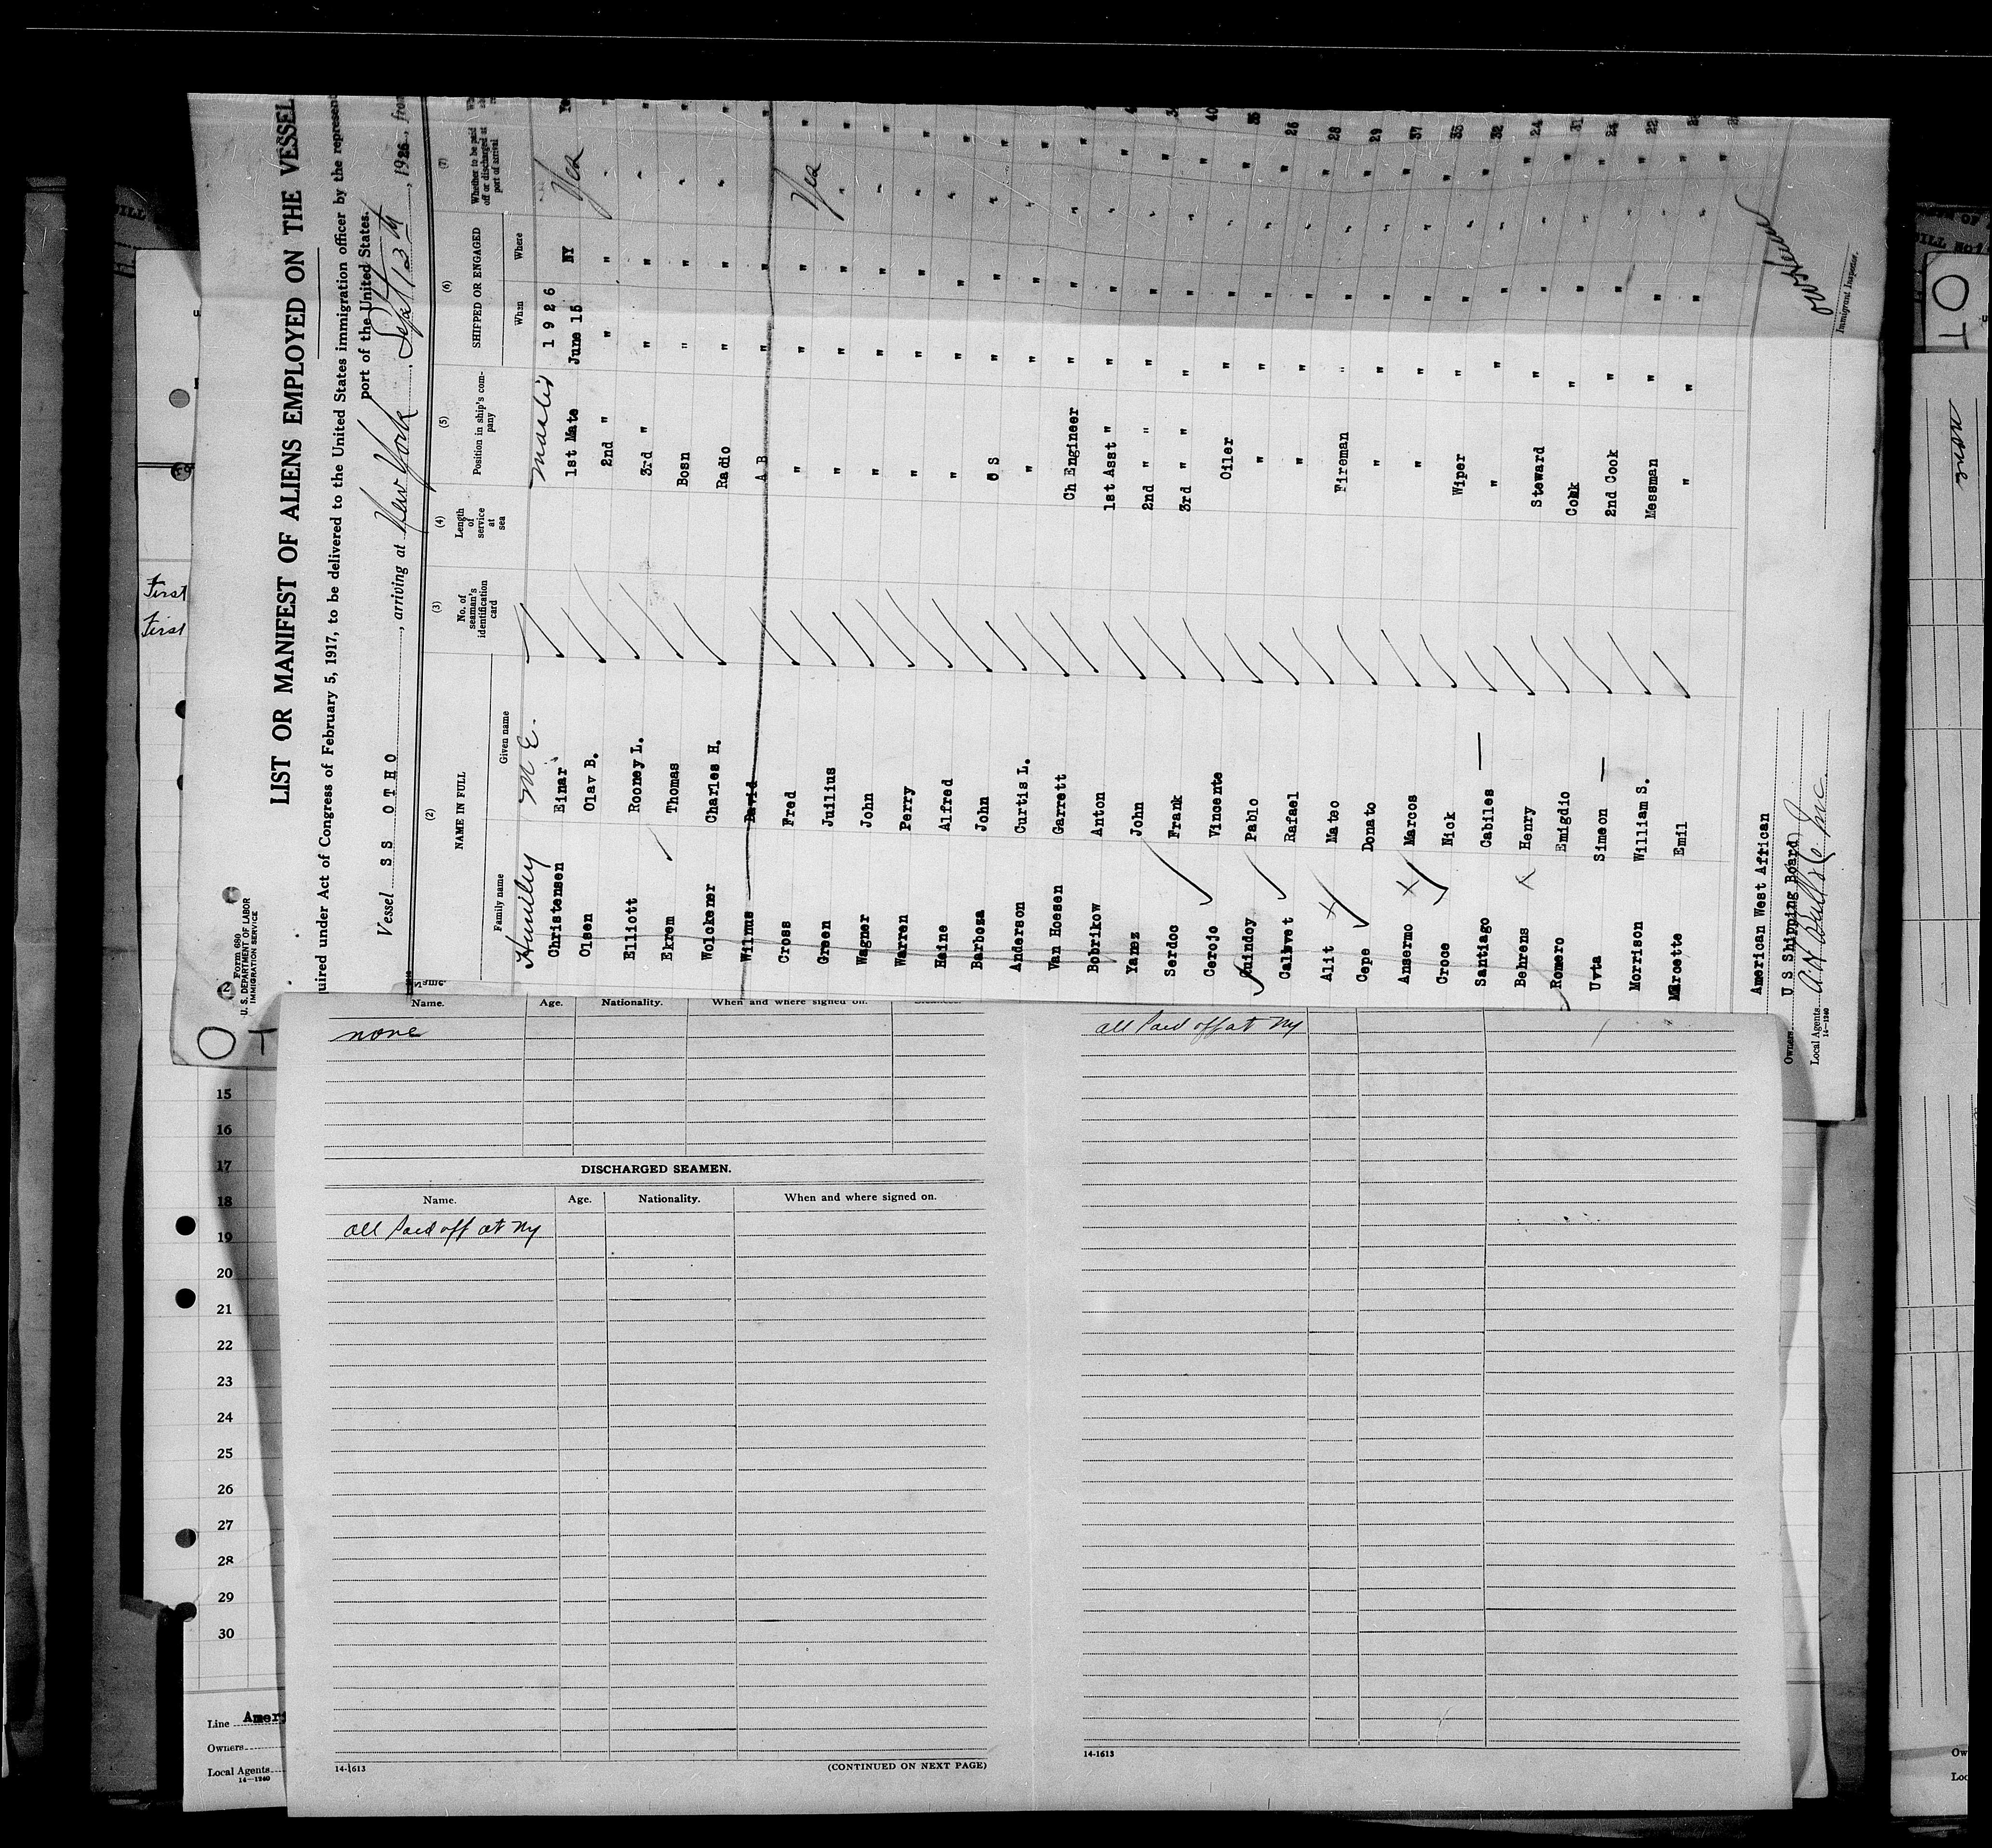 Form 680
U. S. DEPARTMENT OF LABOR
IMMIGRATION SERVICE
LIST OR MANIFEST OF ALIENS EMPLOYED ON THE VESSEL
quired under Act of Congress of February 5, 1917, to be delivered to the United States immigration officer by the represent
port of the United States.
Vessel SS OTHO, arriving at New York, Sept 13th, 1926, from
(2) (3) (4) (5) (6) (7)
NAME IN FULL No. of seaman's identification card Length of service at sea Position in ship's company SHIPPED OR ENGAGED Whether to be paid off or discharged at port of arrival
Family name Given name When Where
M E. 1926 Yes
Christensen Einar 1st Mate June 15 NY
Olsen Olav B. 2nd " " " "
Elliott Rooney L. 3rd " " " "
Ekrem Thomas Bosn " " "
Wolckener Charles H. Radio " " "
Wilms David A B " "
Cross Fred " " " Yes
Green Juilius " " " "
Wagner John " " " "
Warren Perry " " " "
Heine Alfred " " " "
Barbosa John O S " " "
Anderson Curtis L. " " " "
Van Hoesen Garrett Ch Engineer " " "
Bobrikow Anton 1st Asst " " " "
Yanez John 2nd " " " " "
Serdoc Frank 3rd " " " " "
Cerojo Vincente Oiler " " " 40
Guindoy Pablo " " " " 35
Calbvet Rafael " " " " 26
Alit Mateo Fireman " " " 28
Cepe Donato " " " " 29
Ansermo Marcos " " " " 37
Croce Nick Wiper " " " 35
Santiago Cabiles " " " " 32
Behrens Henry Steward " " " 24
Romero Emigdio Cook " " " 31
Uvta Simeon 2nd Cook " " " 24
Morrison William S. Messman " " " 22
Marcette Emil " " " "
American West African
Owners U S Shipping Board
Local Agents A H Bull & Co Inc.
14-1240
Immigrant Inspector.
First
First
OT
Name. Age. Nationality. When and where signed on.
none
DISCHARGED SEAMEN.
Name. Age. Nationality. When and where signed on.
all Paid off at Ny
14-1613
(CONTINUED ON NEXT PAGE)
all Paid off at Ny
14-1613
15
16
17
18
19
20
21
22
23
24
25
26
27
28
29
30
Line Ameri
Owners
Local Agents
14-1240
OT
none
Ow
Loc